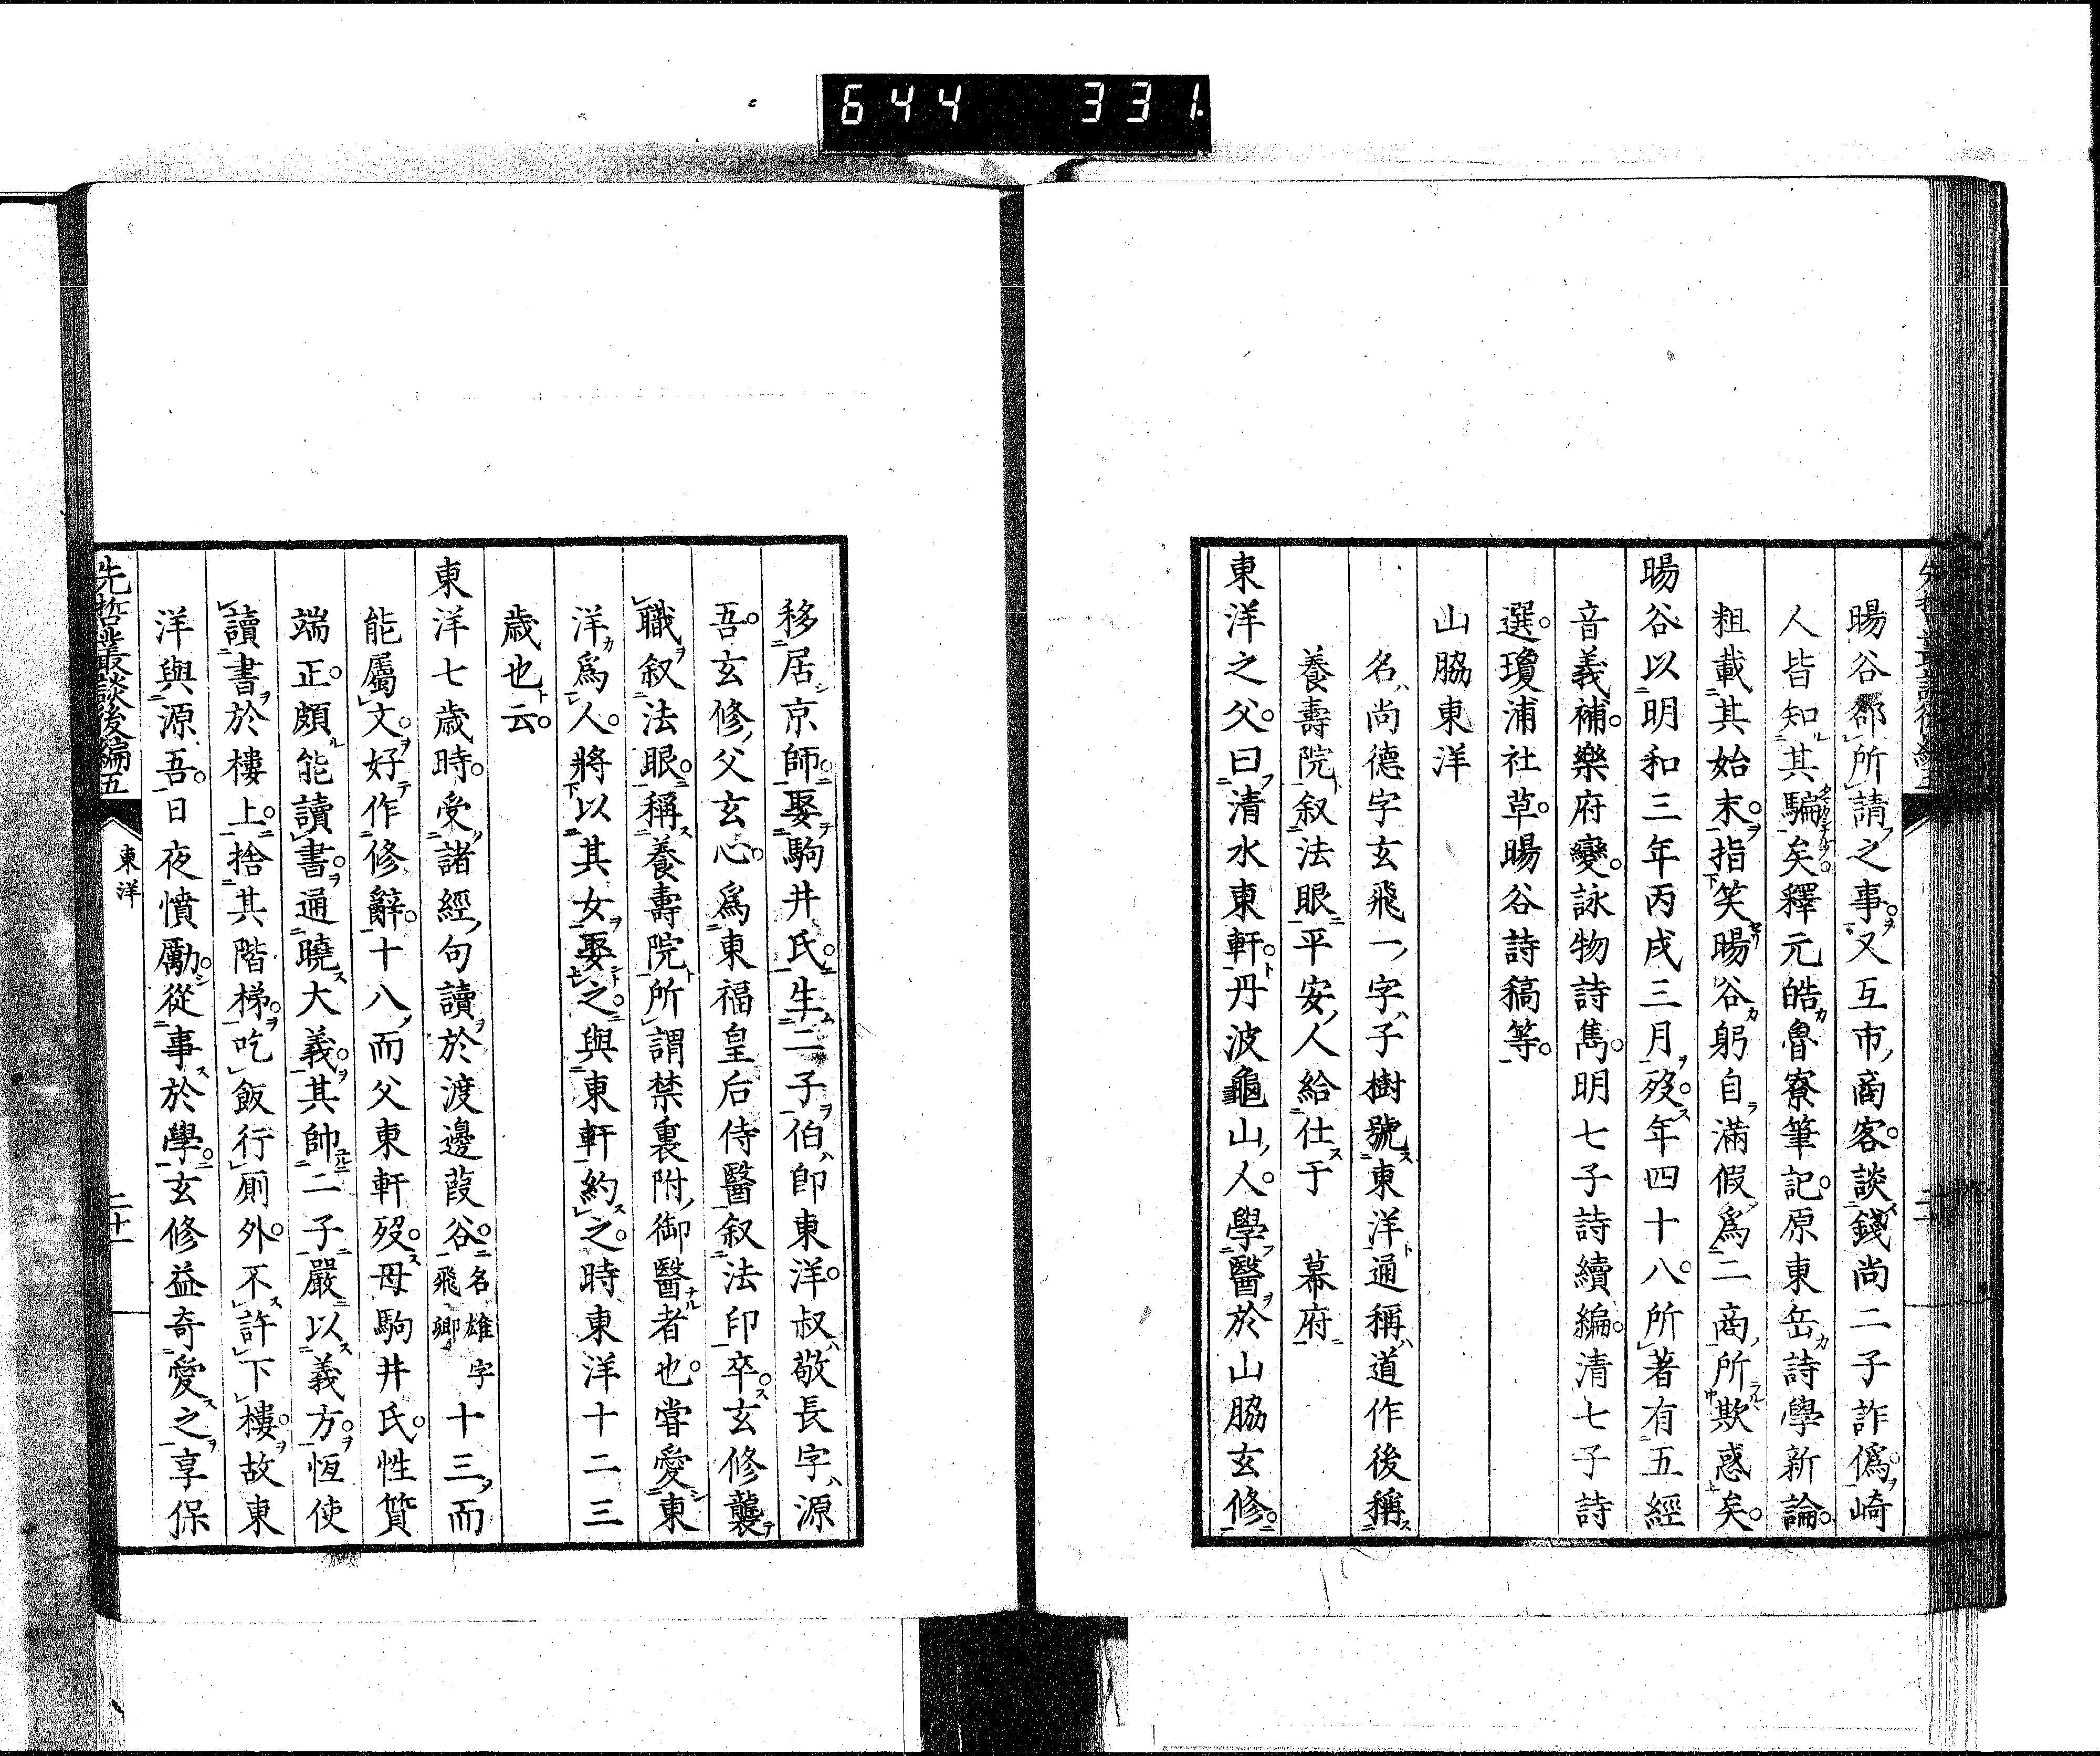 644 331
暘谷鄰所請之事又互市商客談錢尚二子詐僞崎
人皆知其騙矣釋元皓魯寮筆記原東岳詩學新論
粗載其始末指笑暘谷躬自滿假爲二商所欺惑矣
暘谷以明和三年丙戌三月歿年四十八所著有五經
音義補樂府變詠物詩雋明七子詩續編清七子詩
選瓊浦社草暘谷詩稿等
山脇東洋
名尚德字玄飛一字子樹號東洋通稱道作後稱
養壽院叙法眼平安人給仕于 幕府
東洋之父曰清水東軒丹波龜山人學醫於山脇玄修
移居京師娶駒井氏生二子伯卽東洋叔敬長字源
吾玄修父玄心爲東福皇后侍醫叙法印卒玄修襲
職叙法眼稱養壽院所謂禁裏附御醫者也嘗愛東
洋爲人將以其女娶之與東軒約之時東洋十二三
歳也云
東洋七歳時受諸經句讀於渡邊葭谷名雄字飛卿十三而
能屬文好作修辭十八而父東軒歿母駒井氏性質
端正頗能讀書通曉大義其帥二子嚴以義方恆使
讀書於樓上捨其階梯吃飯行厠外不許下樓故東
洋與源吾日夜憤勵從事於學玄修益奇愛之享保
先哲叢談後編五
東洋
二十一